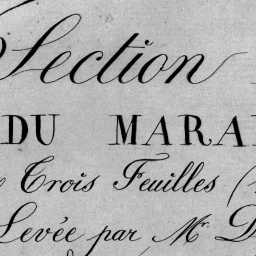 Section
DU MARA
Trois Feuilles (
Levée par Mr. D